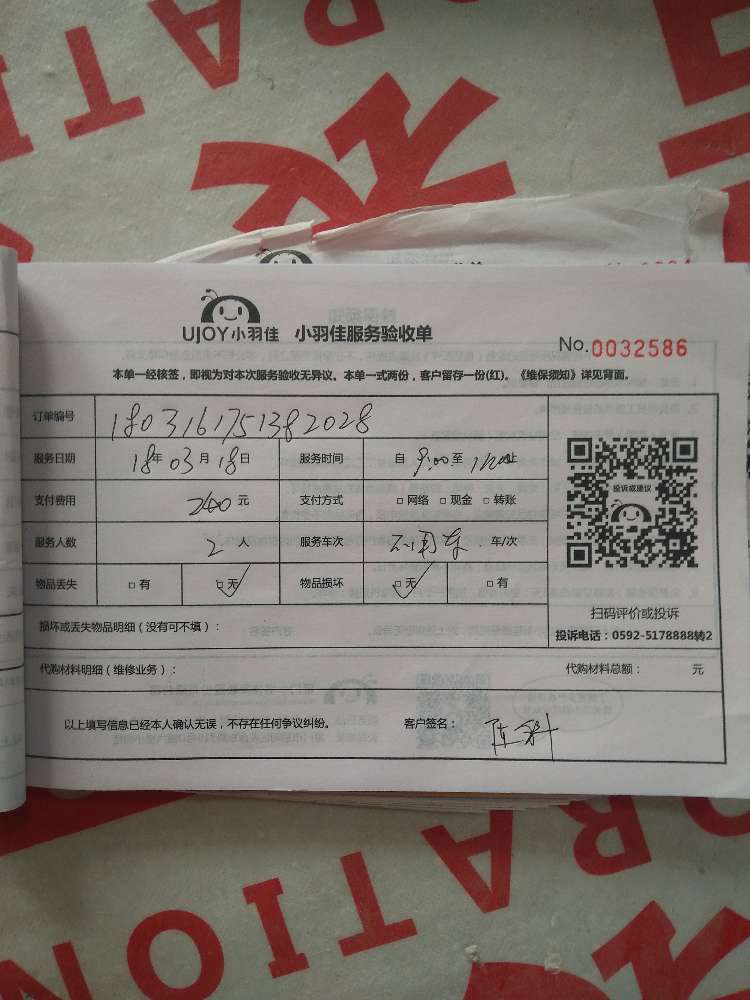 UJOY小羽佳 小羽佳服务验收单
No.0032586
本单一经核签，即视为对本次服务验收无异议。本单一式两份，客户留存一份(红)。《维保须知》详见背面。
订单编号 1803161751382028
服务日期 18年03月18日 服务时间 自 9:00至 止
支付费用 200元 支付方式 □网络 □现金 □转账
服务人数 2人 服务车次 不用车 车/次
物品丢失 □有 □无 物品损坏 □无 □有
投诉或建议
扫码评价或投诉
投诉电话：0592-5178888转2
损坏或丢失物品明细（没有可不填）：
代购材料明细（维修业务）： 代购材料总额： 元
以上填写信息已经本人确认无误，不存在任何争议纠纷。 客户签名：
RATION